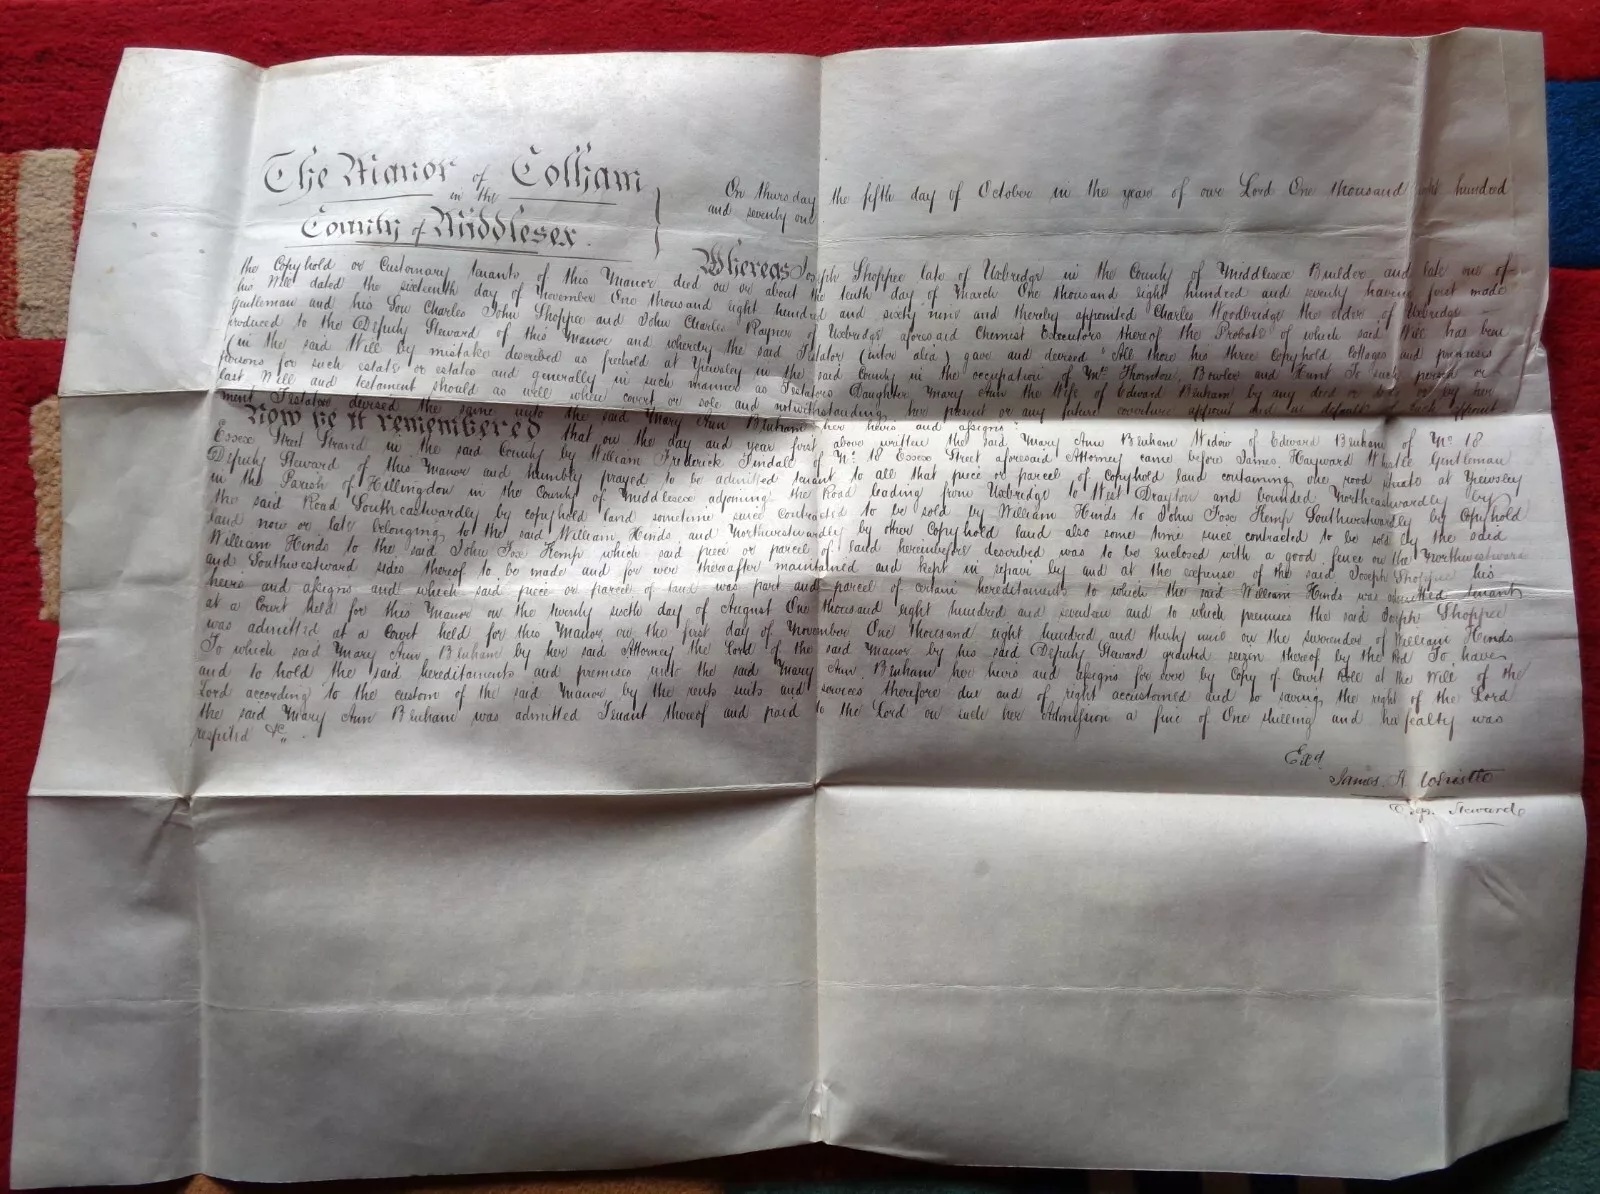 The Manor of Colham
in the
County of Middlesex.
On Thursday the fifth day of October in the year of our Lord One thousand eight hundred
and seventy one
Whereas Joseph Shoppee late of Uxbridge in the County of Middlesex Builder and late one of
the Copyhold or Customary tenants of this Manor died on or about the tenth day of March One thousand eight hundred and seventy having first made
his Will dated the sixteenth day of November One thousand eight hundred and sixty nine and thereby appointed Charles Woodbridge the elder of Uxbridge
Gentleman and his Son Charles John Shoppee and John Charles Rayner of Uxbridge aforesaid Chemist Executors thereof the Probate of which said Will has been
produced to the Deputy Steward of this Manor and whereby the said Testator (inter alia) gave and devised "All those his three Copyhold Cottages and premises
(in the said Will by mistake described as freehold at Yiewsley in the said County in the occupation of Thornton, Bowles and Hunt To such person or
persons for such estate or estates and generally in such manner as Testators Daughter Mary Ann the Wife of Edward Benham by any deed or by her
last Will and testament should as well when covert or sole and notwithstanding her present or any future coverture appoint and in default of such appoint
ment Testator devised the same unto the said Mary Ann Benham her heirs and assigns."
Now be it remembered that on the day and year first above written the said Mary Ann Benham Widow of Edward Benham of No 18
Essex Street Strand in the said County by William Frederick Tindall of No. 18 Essex Street aforesaid Attorney came before James Hayward Whistle Gentleman
Deputy Steward of this Manor and humbly prayed to be admitted tenant to all that piece or parcel of Copyhold land containing one rood situate at Yiewsley
in the Parish of Hillingdon in the County of Middlesex adjoining the Road leading from Uxbridge to West Drayton and bounded Northeastwardly by
the said Road Southeastwardly by copyhold land sometime since contracted to be sold by William Hinds to John Fox Kemp Southwestwardly by Copyhold
land now or late belonging to the said William Hinds and Northwestwardly by other Copyhold land also some time since contracted to be sold by the said
William Hinds to the said John Fox Kemp which said piece or parcel of land hereinbefore described was to be enclosed with a good fence on the Northwestward
and Southwestward sides thereof to be made and for ever thereafter maintained and kept in repair by and at the expense of the said Joseph Shoppee his
heirs and assigns and which said piece or parcel of land was part and parcel of certain hereditaments to which the said William Hinds was admitted tenant
at a Court held for this Manor on the twenty sixth day of August One thousand eight hundred and seventeen and to which premises the said Joseph Shoppee
was admitted at a Court held for this Manor on the first day of November One thousand eight hundred and thirty nine on the surrender of William Hinds
To which said Mary Ann Benham by her said Attorney the Lord of the said Manor by his said Deputy Steward granted seizin thereof by the Rod To have
and to hold the said hereditaments and premises unto the said Mary Ann Benham her heirs and assigns for ever by Copy of Court Roll at the Will of the
Lord according to the custom of the said Manor by the rents suits and services therefore due and of right accustomed and so saving the right of the Lord
the said Mary Ann Benham was admitted Tenant thereof and paid to the Lord on such her Admission a fine of One shilling and her fealty was
respited &c.
Exd.
James H Whistle
Depy Steward